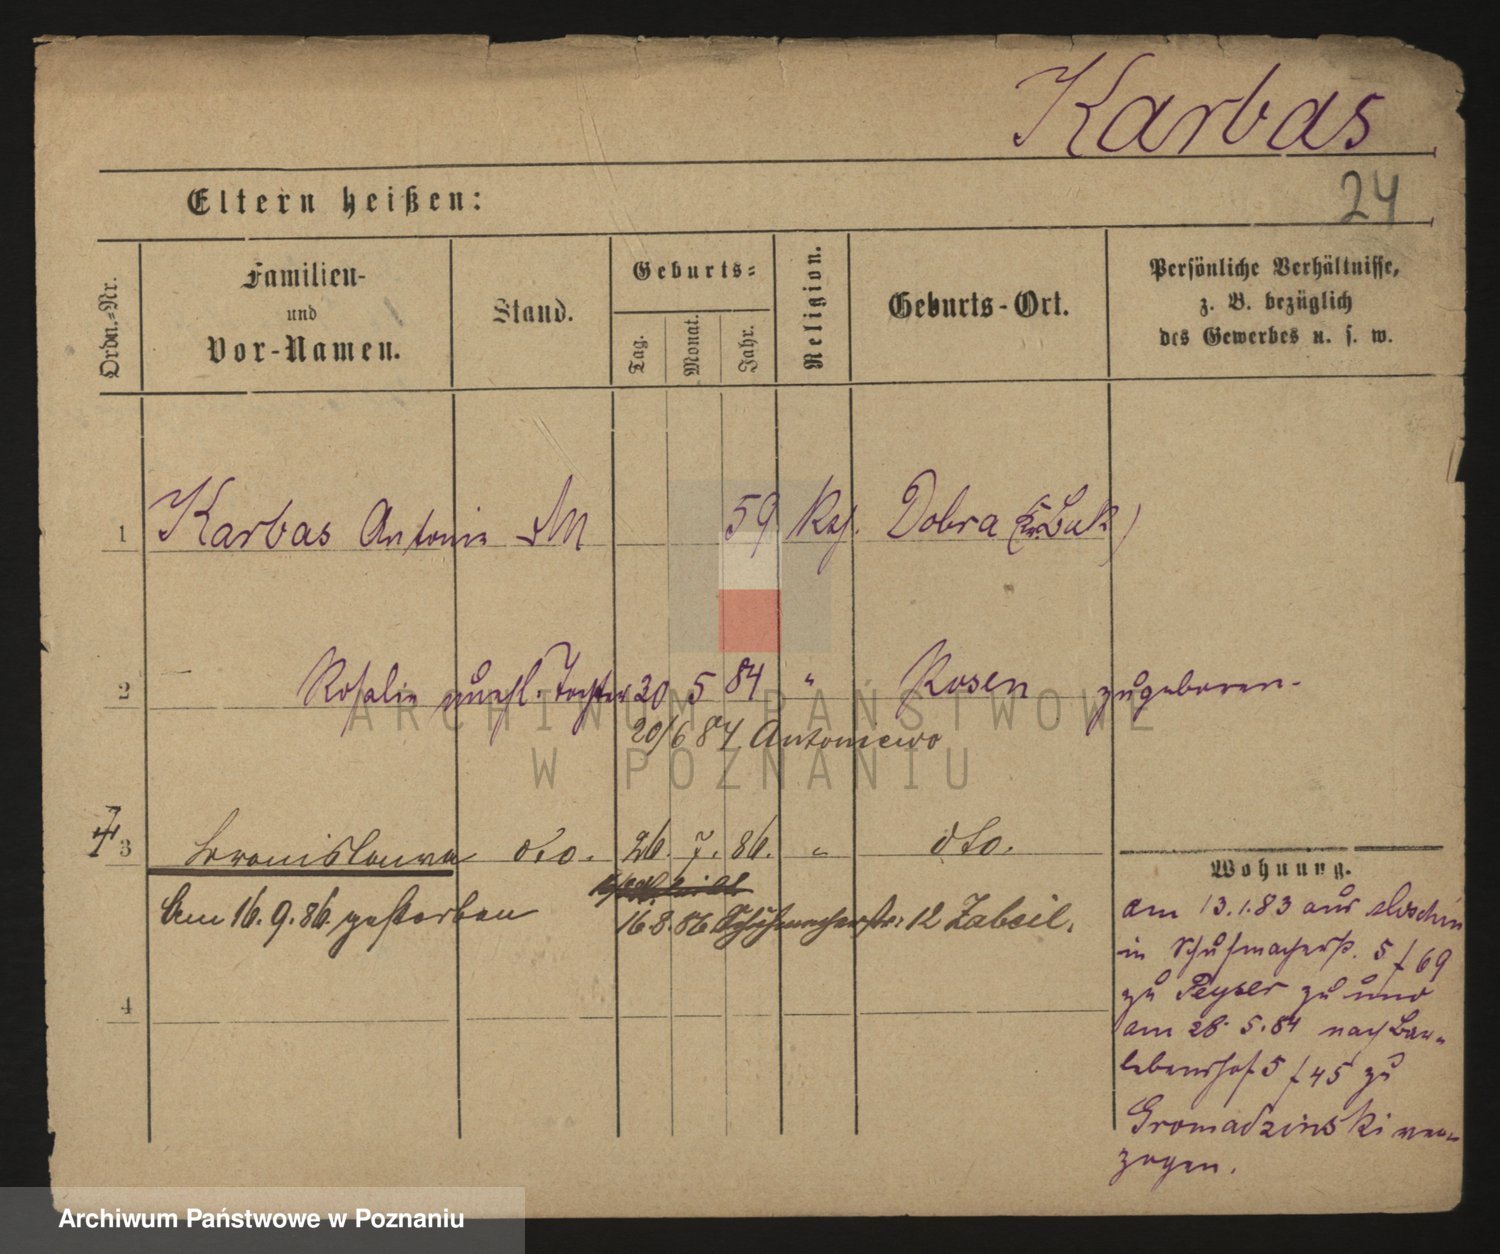 Karbas
24
Eltern heißen:
Ordn.-Nr.
Familien-
und
Vor-Namen.
Stand.
Geburts-
Tag.
Monat.
Jahr.
Religion.
Geburts-Ort.
Persönliche Verhältnisse,
z. B. bezüglich
des Gewerbes u. s. w.
1 Karbas Antonie 59 Dobra (Kr. Buk)
2 Rosalie unehl. Tochter 20 5 84 " Posen zugeboren.
20/6 84 Antoniewo
3 Bronislawa dto. 26. 7. 86. " dto.
Am 16.9.86. gestorben
16 8. 86 Schuhmacherstr: 12 Zabeil.
4
Wohnung.
am 13.1.83 aus
in Schuhmacherstr. 5 f 69
zu Peyser zu und
am 28.5.84 nach Bar-
lebenshof 5 f 45 zu
Gromadzinski ver-
zogen.
ARCHIWUM PAŃSTWOWE
W POZNANIU
Archiwum Państwowe w Poznaniu